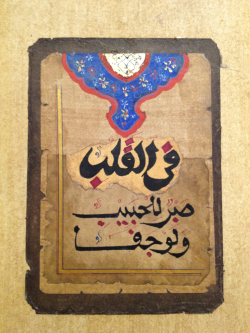 في القلب
صبر للحبيب
ولو جفا